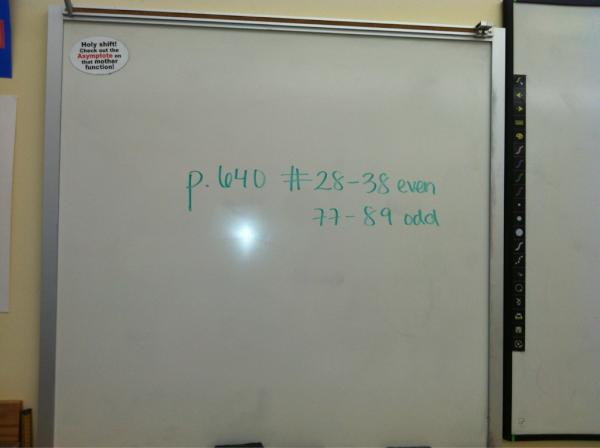 Holy shift!
Check out the
Asymptote on
that mother
function!
p. 640 #28-38 even
77-89 odd